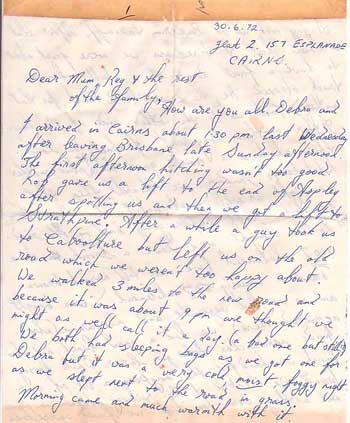 1 2
30.6.72
Flat 2. 157 ESPLANADE
CAIRNS.
Dear Mum, Reg & the rest
of the family,
How are you all. Debra and
I arrived in Cairns about 1:30 pm last Wednesday
after leaving Brisbane late Sunday afternoon.
The first afternoon hitching wasn't too good
Rob gave us a lift to the end of Aspley
after spotting us and then we got a lift to
Strathpine. After a while a guy took us
to Caboolture but left us on the old
road which we weren't too happy about.
We walked 3 miles to the new road and
because it was about 9 pm we thought we
might as well call it a day. (a bad one but still)
We both had sleeping bags as we got one for
Debra but it was a very cold, moist, foggy night
as we slept next to the road in grass.
Morning came and much warmth with it.